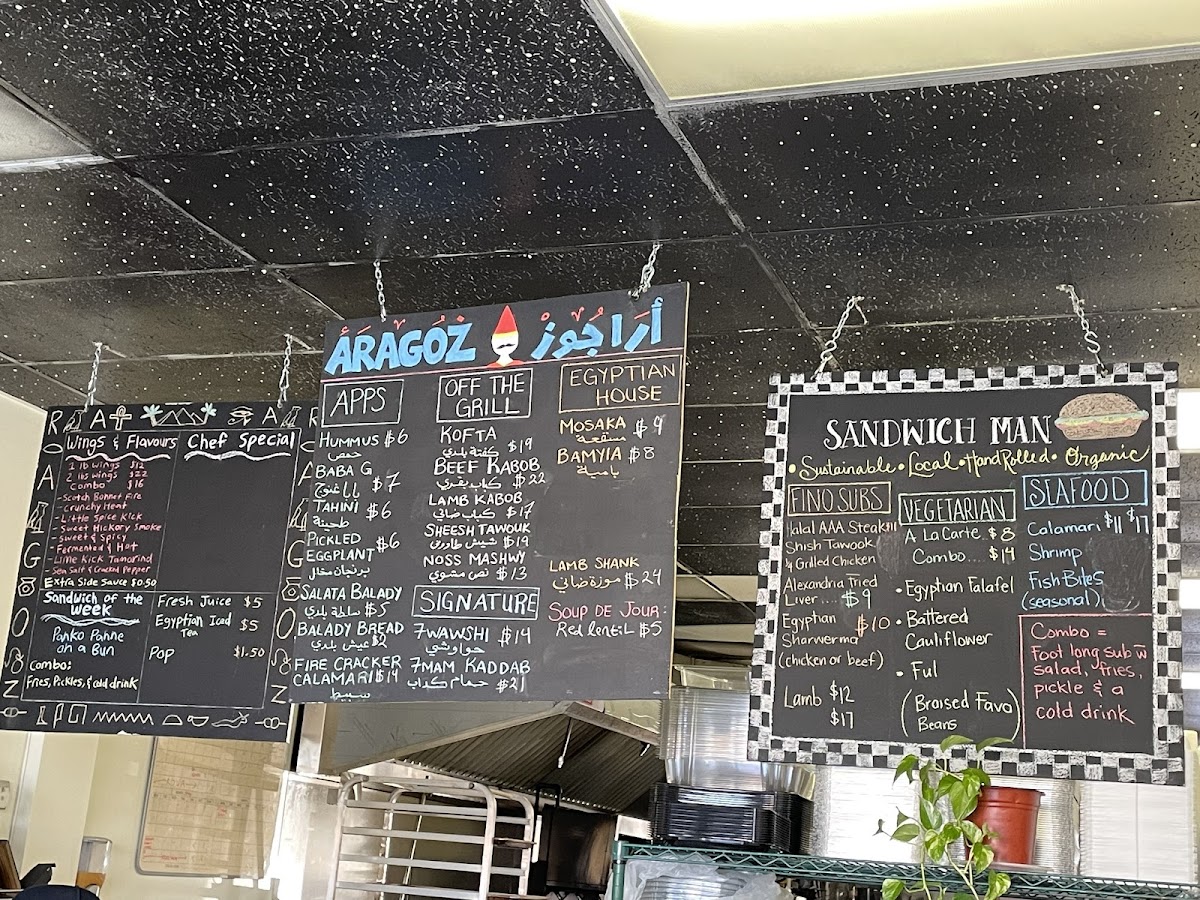 R A A
O A G O O Z
Wings & Flavours
1 lb wings $12
2 lbs wings $22
Combo $16
- Scotch Bonnet Fire
- Crunchy Heat
- Little Spice Kick
- Sweet Hickory Smoke
- Sweet & Spicy
- Fermented & Hot
- Lime Kick Tamarind
- Sea Salt & Cracked Pepper
Extra Side Sauce $0.50
Chef Special
Sandwich of the
week
Panko Panne
on a Bun
Combo:
Fries, Pickles, & cold drink
Fresh Juice $5
Egyptian Iced
Tea $5
Pop $1.50
ARAGOZ أراجوز
APPS
HUMMUS $6
حمص
BABA G. $7
بابا غنوج
TAHINI $6
طحينة
PICKLED
EGGPLANT $6
برنجان مخلل
SALATA BALADY
سلطة بلدي $5
BALADY BREAD
عيش بلدي $2
FIRE CRACKER
CALAMARI $19
سبيط
OFF THE
GRILL
KOFTA
كفتة بلدي $19
BEEF KABOB
كباب بقري $22
LAMB KABOB
كباب ضاني $17
SHEESH TAWOUK
شيش طاووق $19
NOSS MASHWY
نص مشوي $13
SIGNATURE
7WAWSHI $19
حواوشي
7MAM KADDAB
حمام كداب $21
EGYPTIAN
HOUSE
MOSAKA $9
مسقعة
BAMYIA $8
بامية
LAMB SHANK
موزة ضاني $24
SOUP DE JOUR:
Red lentil $5
SANDWICH MAN
• Sustainable • Local • Hand Rolled • Organic
FINO SUBS
Halal AAA Steak
Shish Tawook
Grilled Chicken
Alexandria Fried
Liver .... $9
Egyptian $10
Sharwerma
(chicken or beef)
Lamb $12
$17
VEGETARIAN
A La Carte. $8
Combo.... $14
• Egyptian Falafel
• Battered
Cauliflower
• Ful
(Braised Fava
Beans)
SEAFOOD
Calamari $11 $17
Shrimp
Fish Bites
(seasonal)
Combo =
Foot long sub w̄
salad, fries,
pickle & a
cold drink